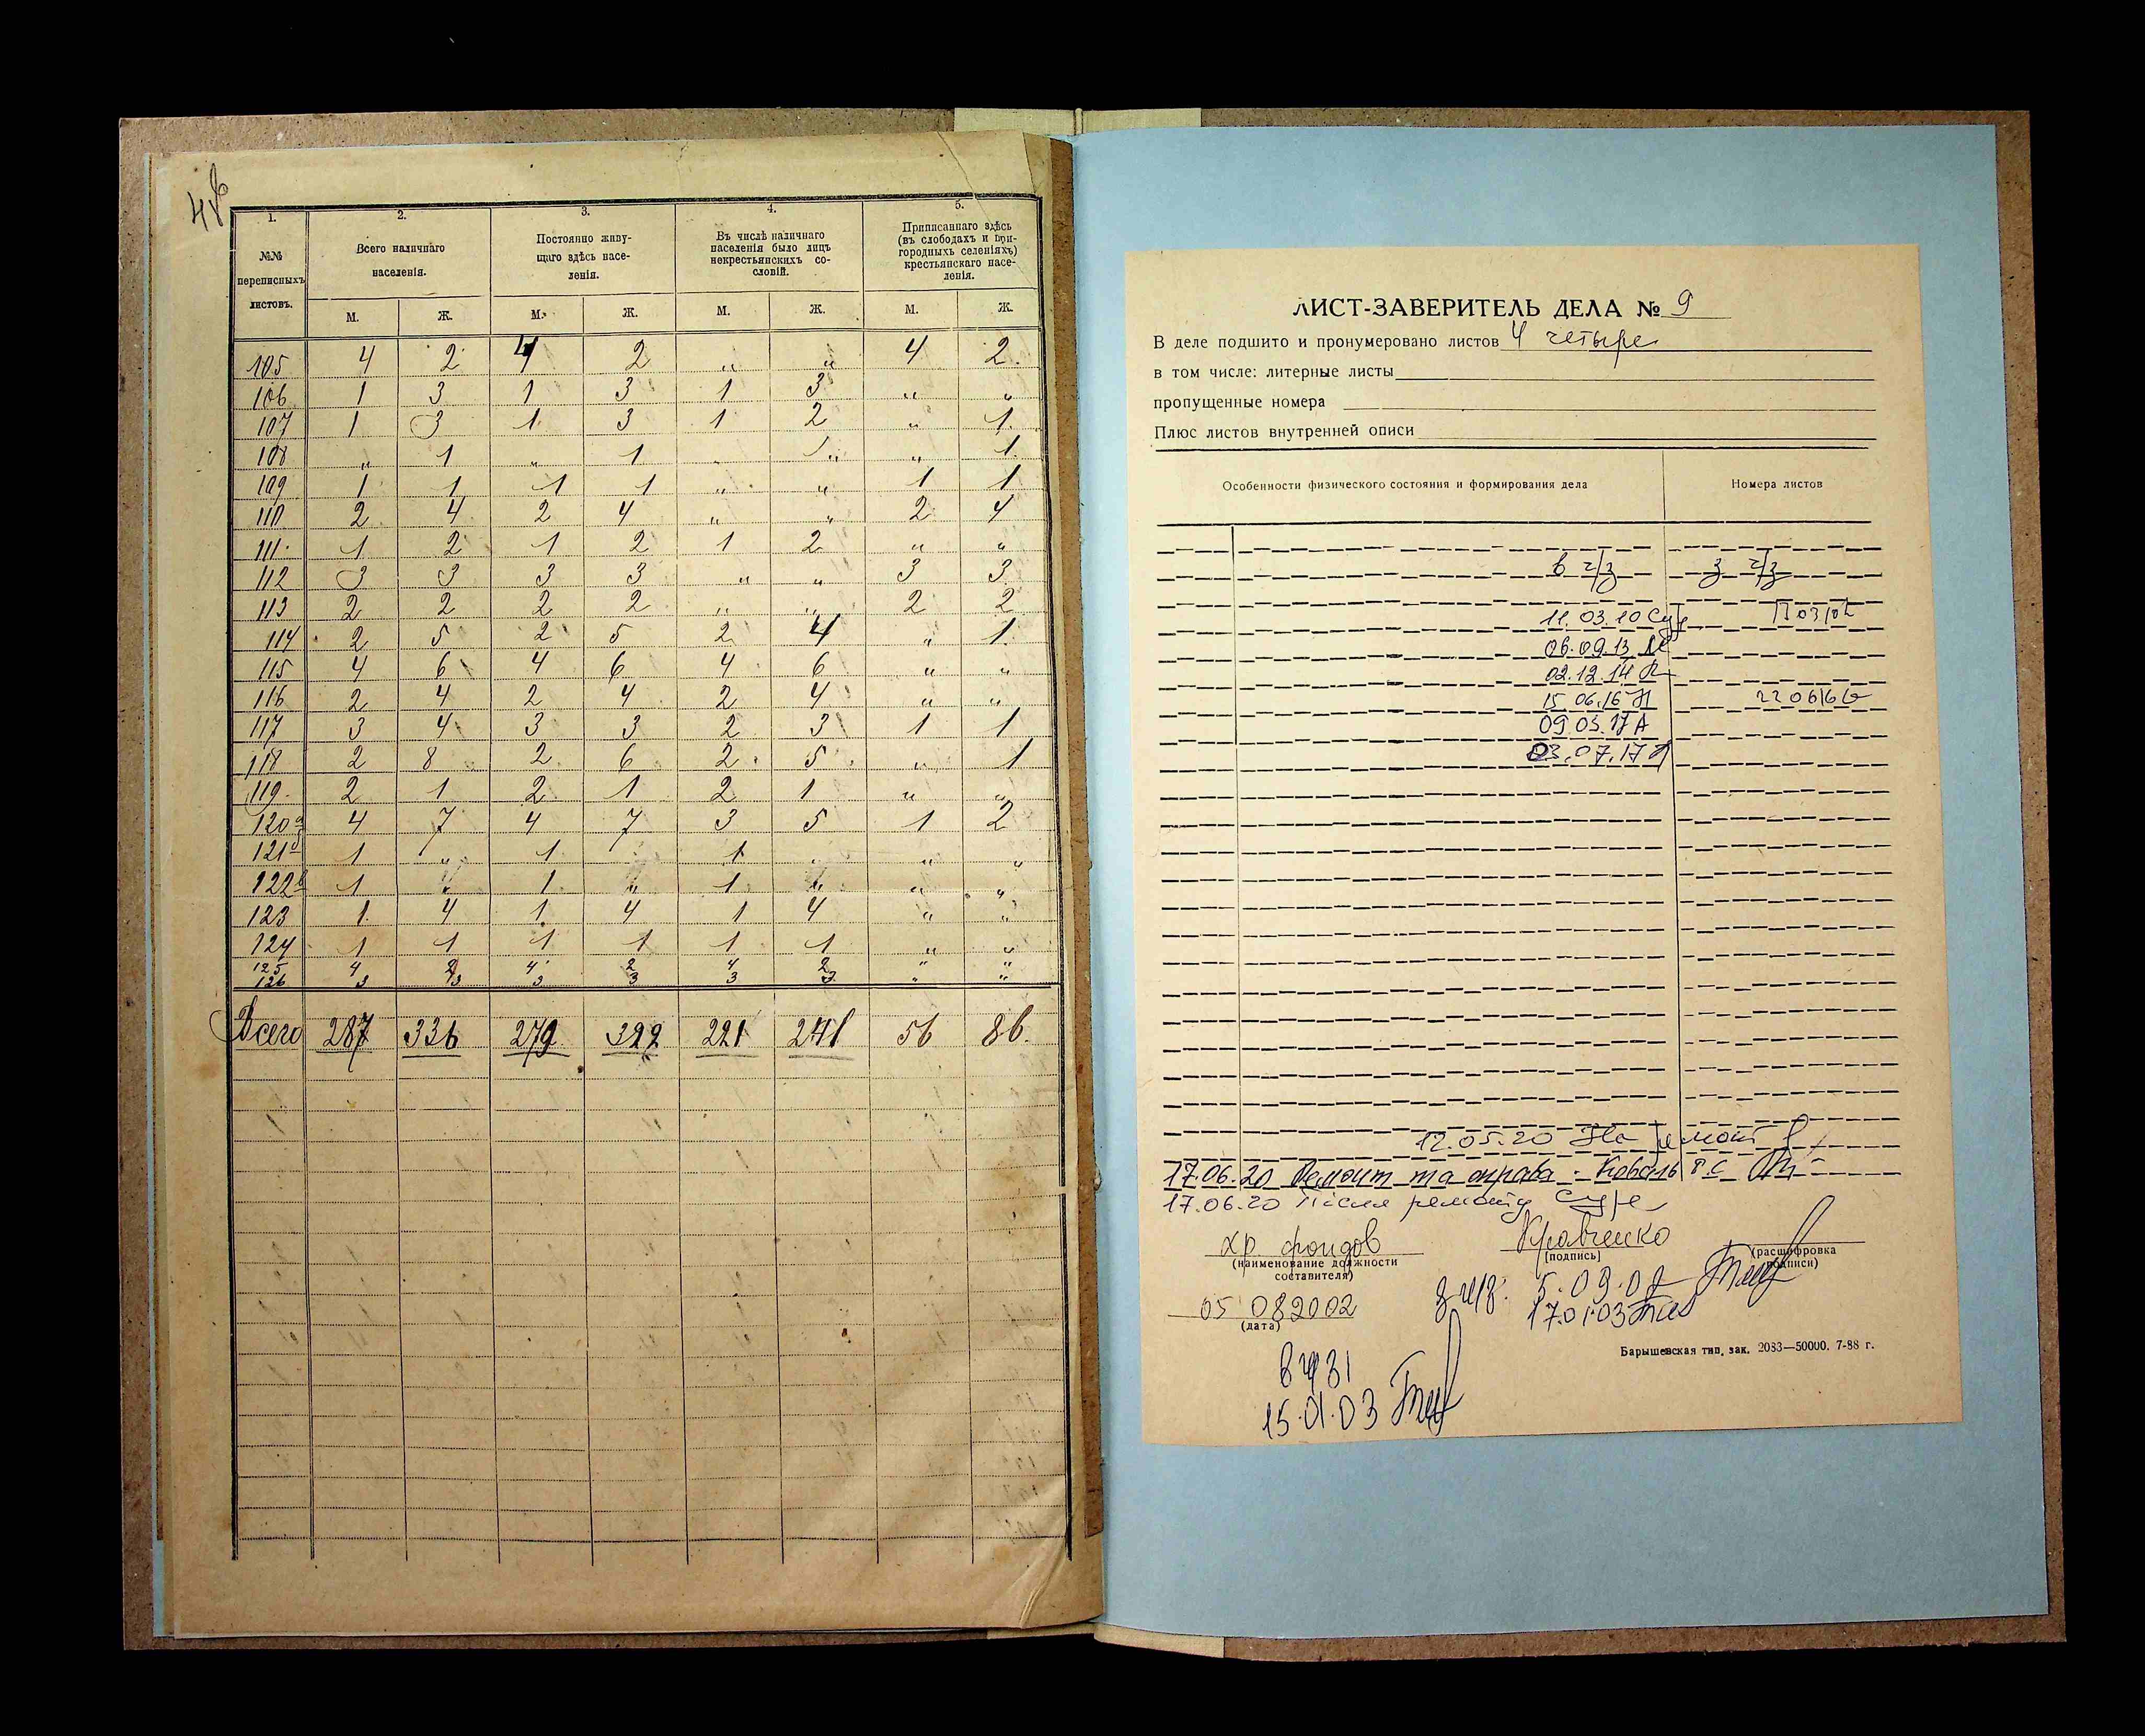 1. 2. 3. 4. 5.
№№ переписныхъ листовъ.
Всего наличнаго населенія.
Постоянно живущаго здѣсь населенія.
Въ числѣ наличнаго населенія было лицъ некрестьянскихъ сословій.
Приписаннаго здѣсь (въ слободахъ и пригородныхъ селеніяхъ) крестьянскаго населенія.
М. Ж. М. Ж. М. Ж. М. Ж.
105 4 2 4 2 „ „ 4 2
106 1 3 1 3 1 3 „ „
107 1 3 1 3 1 2 „ 1
108 „ 1 „ 1 „ „ „ 1
109 1 1 1 1 „ „ 1 1
110 2 4 2 4 „ „ 2 4
111 1 2 1 2 1 2 „ „
112 3 3 3 3 „ „ 3 3
113 2 2 2 2 „ „ 2 2
114 2 5 2 5 2 4 „ 1
115 4 6 4 6 4 6 „ „
116 2 4 2 4 2 4 „ „
117 3 4 3 3 2 3 1 1
118 2 8 2 6 2 5 „ 1
119 2 1 2 1 2 1 „ „
120 4 7 4 7 3 5 1 2
121 1 „ 1 „ 1 „ „ „
122 1 „ 1 „ 1 „ „ „
123 1 4 1 4 1 4 „ „
124 1 1 1 1 1 1 „ „
125 4 2 4 2 4 2 „ „
126 3 3 3 3 3 3 „ „
Всего 287 336 279 322 221 241 56 86.
ЛИСТ-ЗАВЕРИТЕЛЬ ДЕЛА № 9
В деле подшито и пронумеровано листов 4 четыре
в том числе: литерные листы
пропущенные номера
Плюс листов внутренней описи
Особенности физического состояния и формирования дела
Номера листов
в ч/з з ч/з
11.03.10
06.09.13
02.12.14
15.06.16 220616
09.03.17
03.07.17
12.05.20 На ремонт
17.06.20 Ремонт та оправа - Коваль Р.С
17.06.20 Після ремонту
хр фондов Кравченко
(наименование должности составителя)
(подпись)
(расшифровка подписи)
05 08 2002
(дата)
17.01.03
15.01.03
Барышевская тип. зак. 2083—50000. 7-88 г.